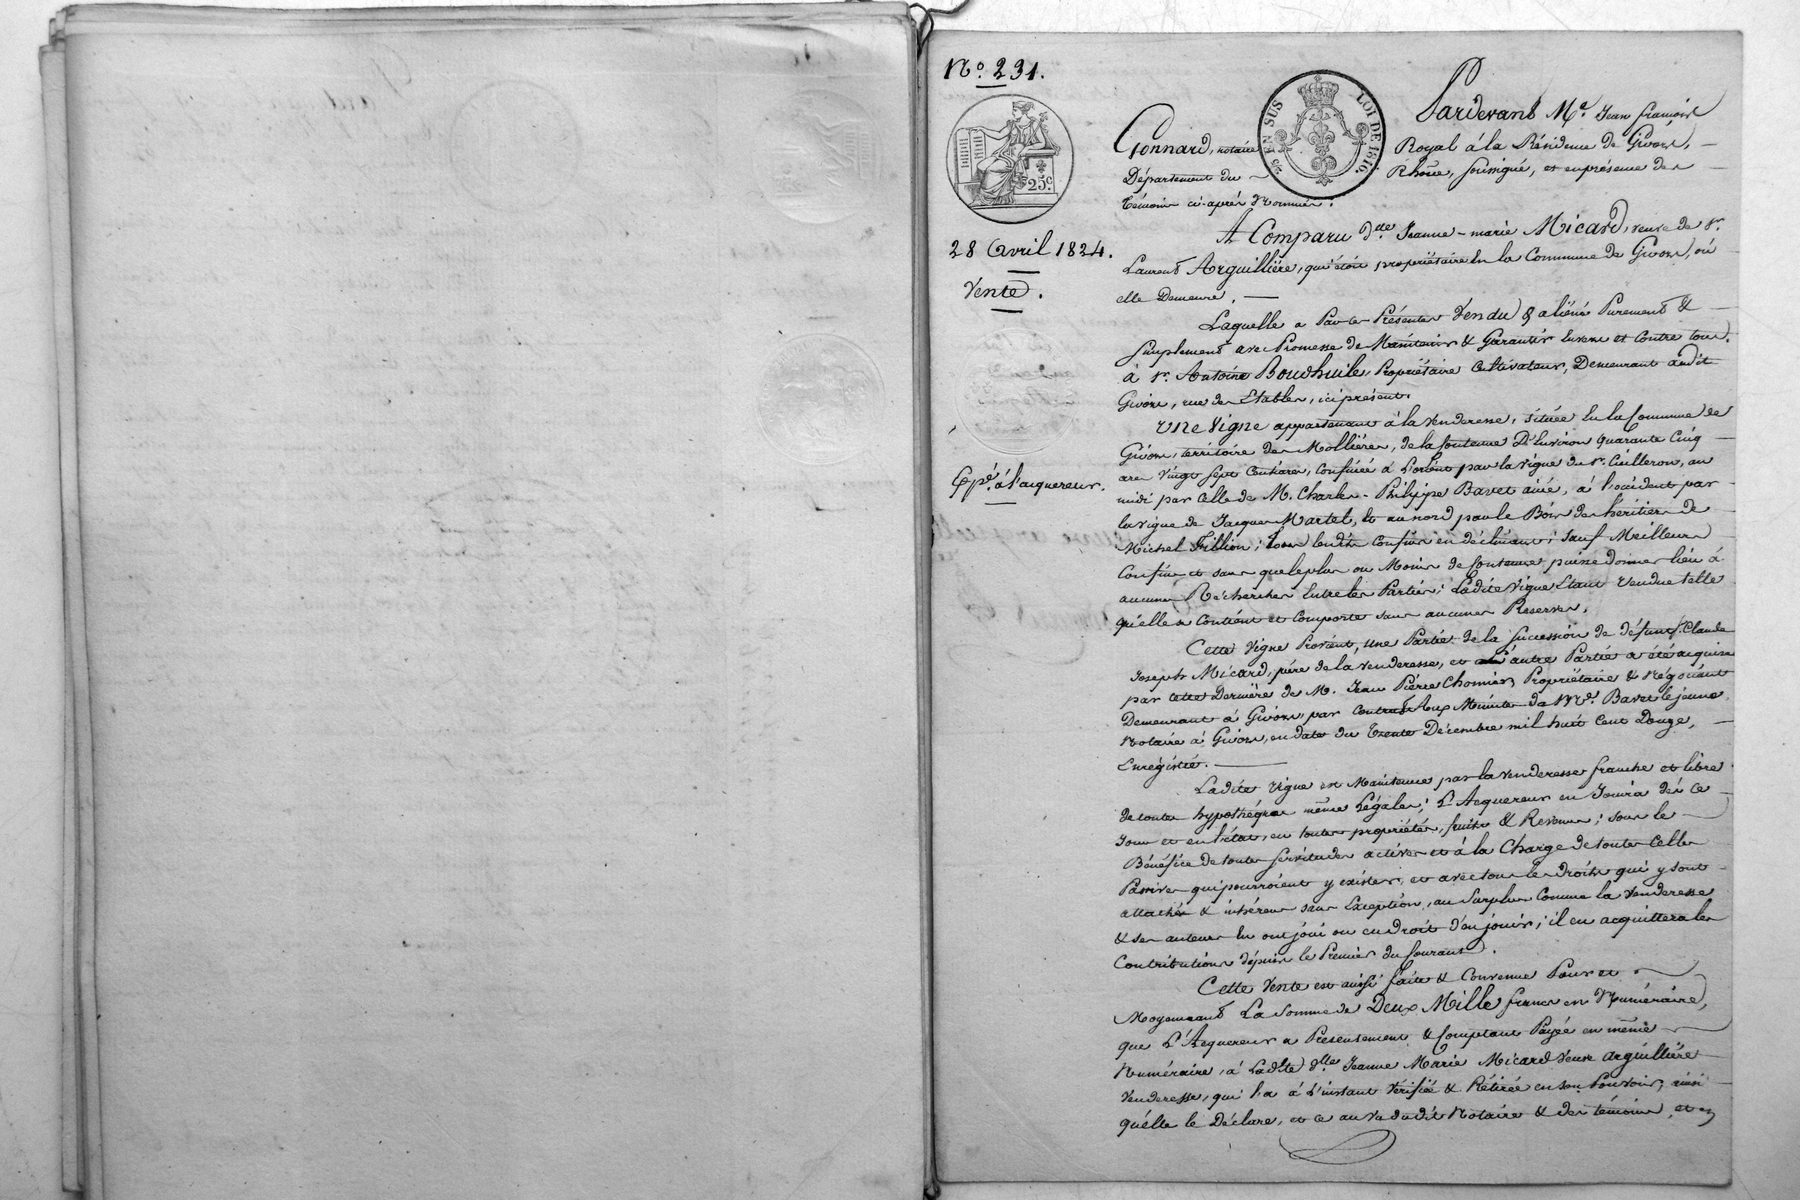 N.º 231.
25.c
5 EN SUS LOI DE 1816.
28 Avril 1824.
Vente.
Exp.é à l'acquereur.
Pardevant M.e Jean François
Gonnard, notaire Royal à la Résidence de Givors,
Département du Rhône, soussigné, et en présence des
témoins ci-après Nommés.
A Comparu d.lle Jeanne-marie Micard, veuve de S.r
Laurent Arguillière, qui étoit propriétaire en la Commune de Givors, où
elle Demeure.
Laquelle a Par les Présentes Vendu & aliéné Purement &
Simplement avec Promesse de Maintenir & Garantir envers et Contre tous,
à S.r Antoine Bouchuile, Propriétaire Cultivateur, Demeurant audit
Givors, rue des Etables, ici présent.
Une Vigne appartenant à la venderesse, située en la Commune de
Givors, territoire des Mollières, de la Contenue D'Environ quarante Cinq
ares Vingt Sept Centiares, Confinée à L'orient par la vigne du S.r Cuilleron, au
midi par Celle de M. Charles-Philippe Bavet ainé, à l'occident par
la vigne de Jacques Martel, et au nord par le Bois des héritiers de
Michel Fillion; tous lesdits Confins en déclinant; sauf Meilleurs
Confins et sans que le plus ou Moins de Contenue puisse donner lieu à
aucunes Recherches Entre les Parties; Ladite Vigne Etant Vendue telle
qu'elle se Contient et Comporte sans aucunes Reserves.
Cette Vigne Provient, une Partie de la succession de défunt S. Claude
Joseph Micard, père de la venderesse, et L'autre Partie a été acquise
par Cette Dernière de M. Jean Pierre Chomier, Propriétaire & Négociant
Demeurant à Givors, par Contrat Aux Minutes de M.e Bavet le jeune
Notaire à Givors, en date du Trente Décembre mil huit Cent Douze,
Enregistré.
Ladite Vigne est Maintenue par la venderesse franche et libre
de toutes hypothéques même Légales; L'Acquereur en Jouira dès ce
Jour et en l'état, en toutes propriétés, fruits & Revenus; sous le
Bénéfice de toutes servitudes actives et à la Charge de toutes Celles
Passives qui pourroient y exister, et avec tous les droits qui y sont
attachés & inhérens sans Exception, au surplus Comme la Venderesse
& ses auteurs en ont joui ou eu droit d'en jouir; il en acquittera les
Contributions depuis le Premier du Courant.
Cette Vente est ainsi faite & Convenue Pour et
Moyennant La Somme de Deux Mille francs en Numéraire,
que L'Acquereur a Présentement & Comptant Payée en même
Numéraire, à Ladite d.lle Jeanne Marie Micard veuve Arguillière
Venderesse, qui l'a à L'instant Vérifiée & Retirée en son Pouvoir, ainsi
qu'elle le Déclare, et ce au vu dudit Notaire & des témoins, et en